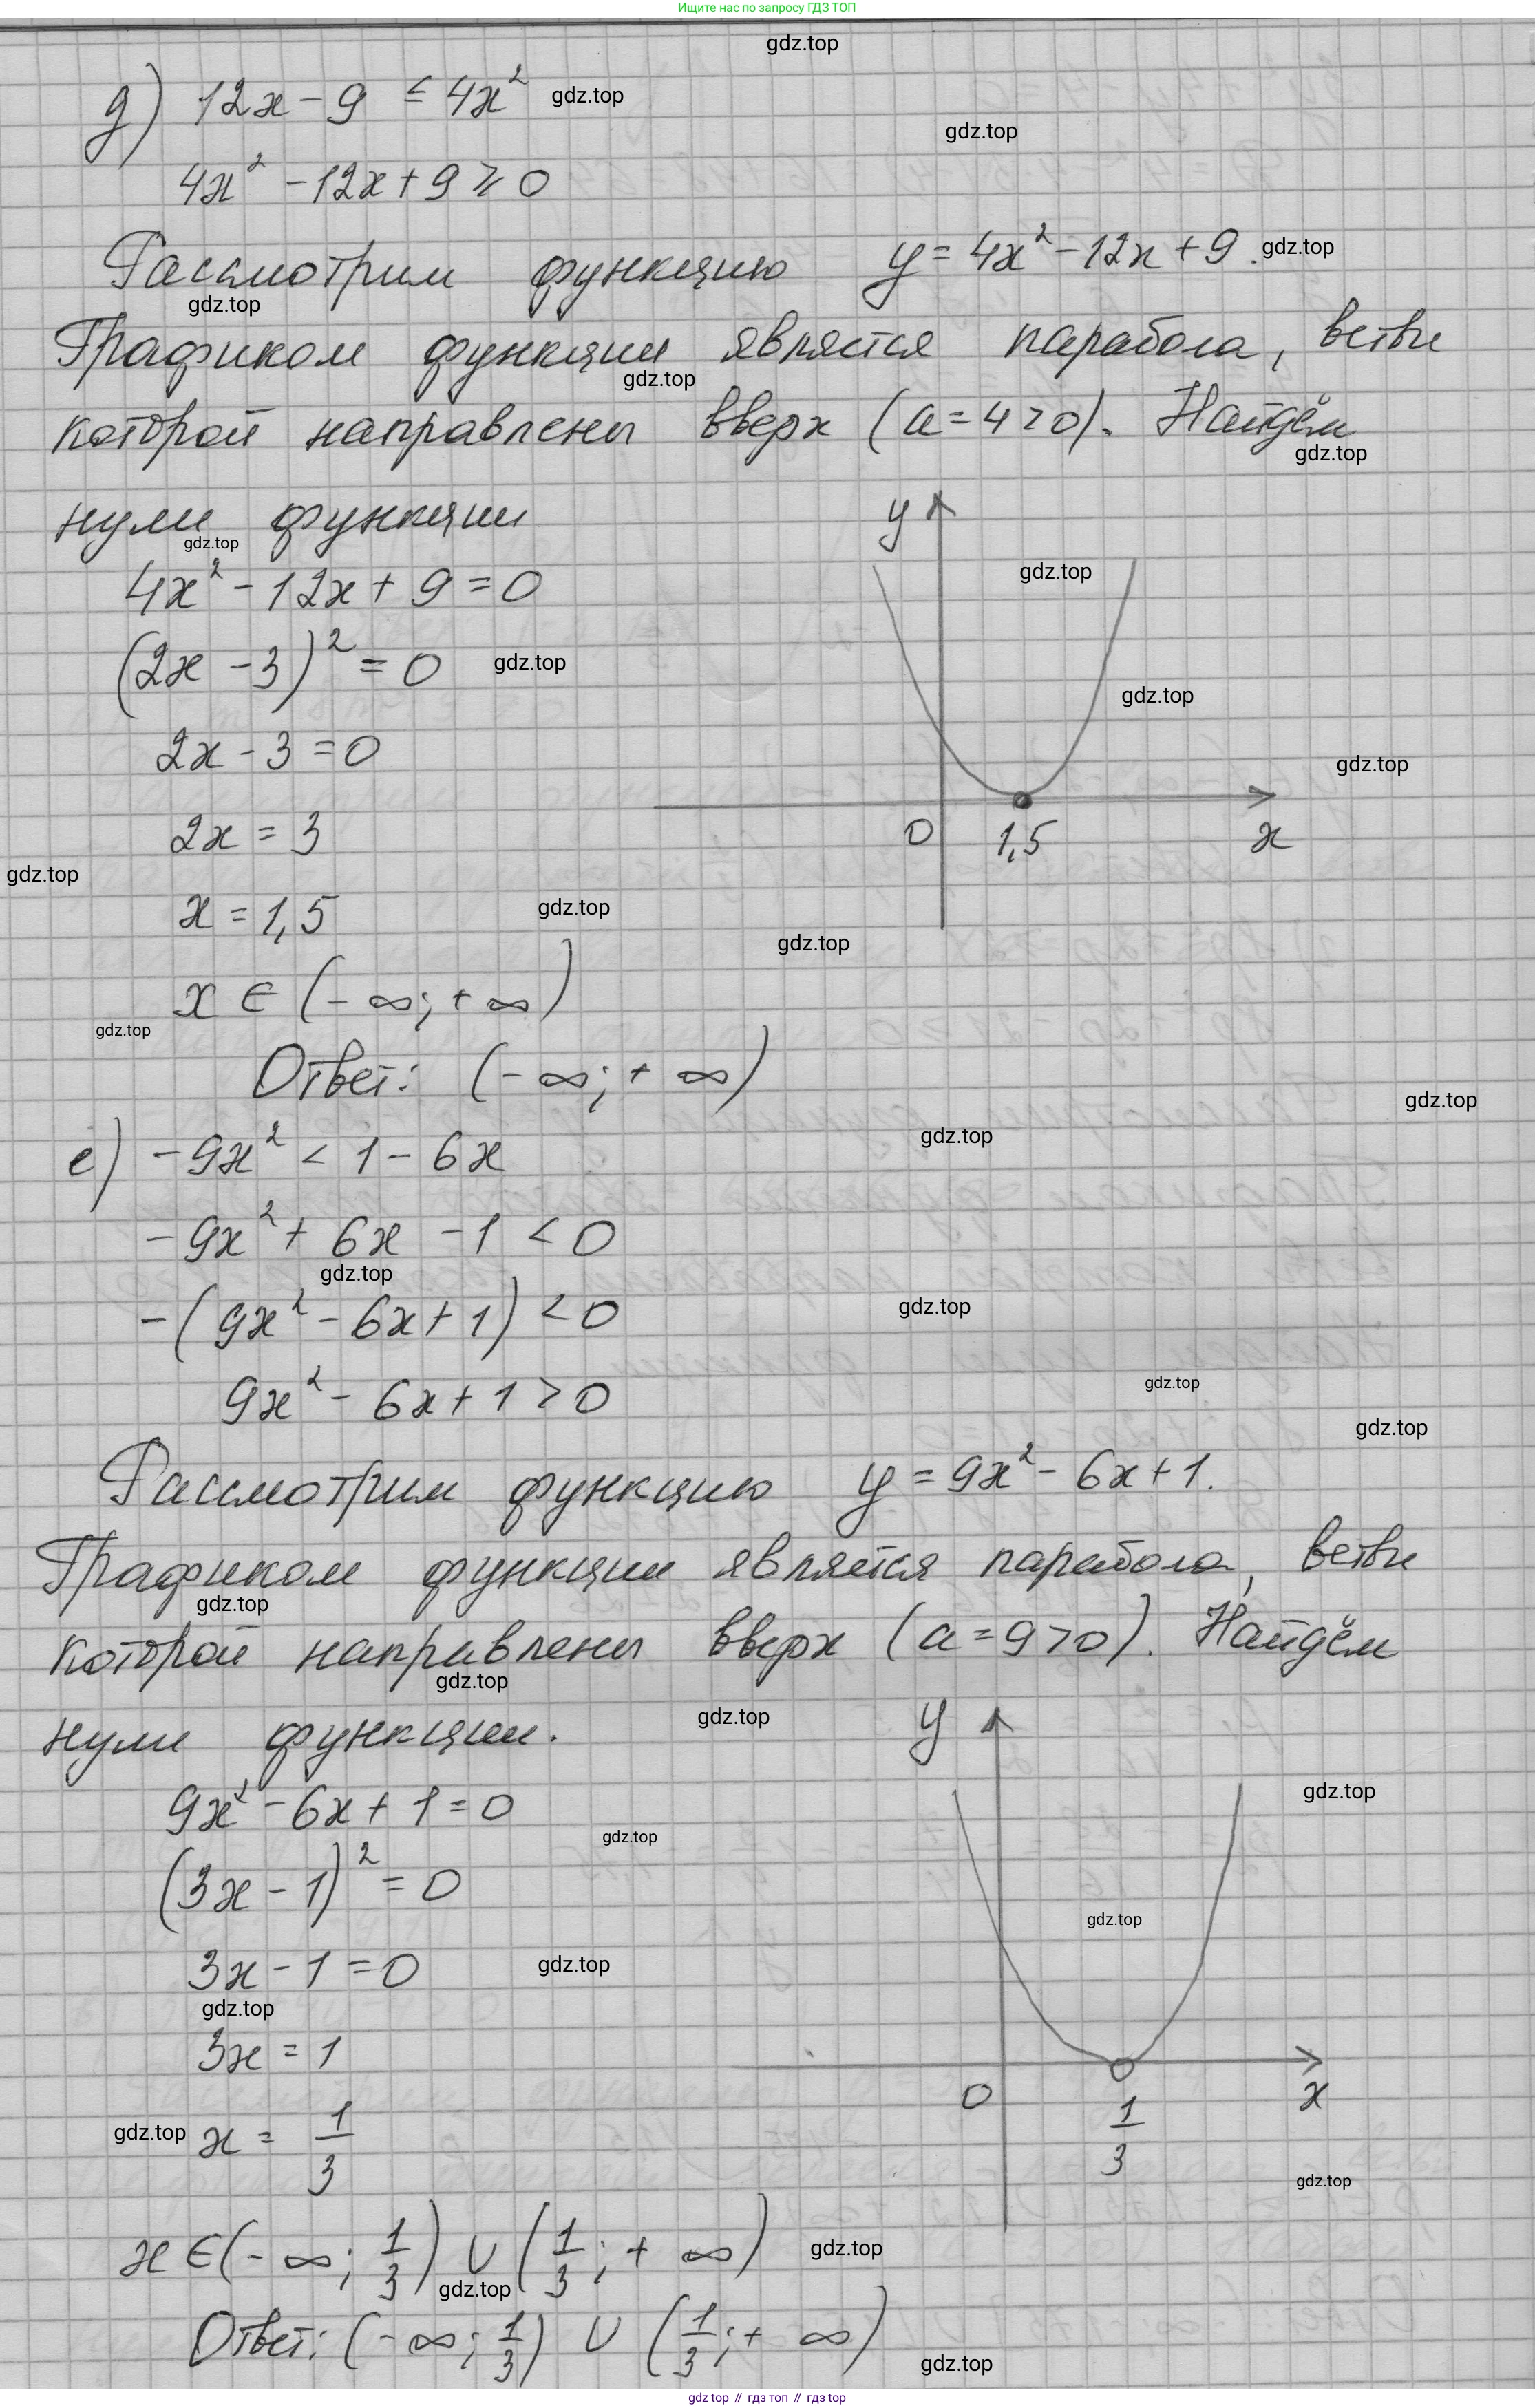 Ищите нас по запросу ГДЗ ТОП
gdz.top
д) 12x - 9 ≤ 4x² gdz.top
gdz.top
4x² - 12x + 9 ≥ 0
Рассмотрим функцию y = 4x² - 12x + 9. gdz.top
gdz.top
Графиком функции является парабола, ветви
gdz.top
которой направлены вверх (a = 4 > 0). Найдём
gdz.top
нули функции y
gdz.top
4x² - 12x + 9 = 0 gdz.top
(2x - 3)² = 0 gdz.top
gdz.top
2x - 3 = 0 gdz.top
2x = 3 0 1,5 x
gdz.top
x = 1,5 gdz.top
gdz.top
x ∈ (-∞; +∞)
gdz.top
Ответ: (-∞; +∞)
gdz.top
gdz.top
е) -9x² < 1 - 6x
-9x² + 6x - 1 < 0
gdz.top
-(9x² - 6x + 1) < 0 gdz.top
gdz.top
9x² - 6x + 1 > 0
gdz.top
Рассмотрим функцию y = 9x² - 6x + 1.
Графиком функции является парабола, ветви
gdz.top
которой направлены вверх (a = 9 > 0). Найдём
gdz.top
gdz.top
нули функции. y
gdz.top
9x² - 6x + 1 = 0
gdz.top
(3x - 1)² = 0
gdz.top
3x - 1 = 0 gdz.top
gdz.top
3x = 1
0 1/3 x
gdz.top x = 1/3
gdz.top
x ∈ (-∞; 1/3) ∪ (1/3; +∞) gdz.top
gdz.top
Ответ: (-∞; 1/3) ∪ (1/3; +∞)
gdz.top
gdz top // гдз топ // gdz top